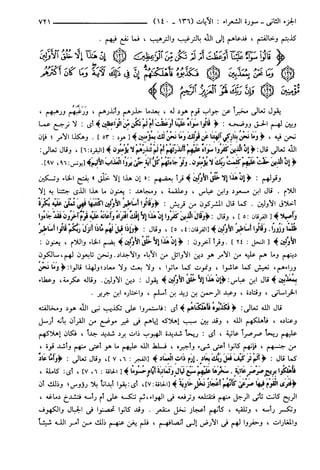 الجزء الثانى ـ سورة الشعراء : الآيات (١٣٦ - ١٤٠) ٧٢١
كذبتم وخالفتم ، فدعاهم إلى الله بالترغيب والترهيب ، فما نفع فيهم .
﴿قَالُوا۟ سَوَآءٌ عَلَيْنَآ أَوَعَظْتَ أَمْ لَمْ تَكُن مِّنَ ٱلْوَٰعِظِينَ إِنْ هَٰذَآ إِلَّا خُلُقُ ٱلْأَوَّلِينَ
وَمَا نَحْنُ بِمُعَذَّبِينَ فَكَذَّبُوهُ فَأَهْلَكْنَٰهُمْ إِنَّ فِى ذَٰلِكَ لَءَايَةً وَمَا كَانَ أَكْثَرُهُم مُّؤْمِنِينَ
وَإِنَّ رَبَّكَ لَهُوَ ٱلْعَزِيزُ ٱلرَّحِيمُ﴾
يقول تعالى مخبراً عن جواب قوم هود له ، بعدما حذرهم وأنذرهم ، ورَغَّبهم ورهبهم ،
وبين لهم الحق ووضحه : ﴿قَالُوا سَوَاءٌ عَلَيْنَا أَوَعَظْتَ أَمْ لَمْ تَكُن مِّنَ الْوَاعِظِينَ﴾ أى : لا نرجع عما
نحن فيه ، ﴿وَمَا نَحْنُ بِتَارِكِي آلِهَتِنَا عَن قَوْلِكَ وَمَا نَحْنُ لَكَ بِمُؤْمِنِينَ﴾ [هود : ٥٣] . وهكذا الأمر ؛ فإن
الله تعالى قال : ﴿إِنَّ الَّذِينَ كَفَرُوا سَوَاءٌ عَلَيْهِمْ أَأَنذَرْتَهُمْ أَمْ لَمْ تُنذِرْهُمْ لا يُؤْمِنُونَ﴾ [البقرة:٦] ، وقال تعالى:
﴿إِنَّ الَّذِينَ حَقَّتْ عَلَيْهِمْ كَلِمَتُ رَبِّكَ لا يُؤْمِنُونَ . وَلَوْ جَاءَتْهُمْ كُلُّ آيَةٍ حَتَّىٰ يَرَوُا الْعَذَابَ الأَلِيمَ﴾ [يونس:٩٦، ٩٧].
وقولهم : ﴿إِنْ هَذَا إِلَّا خُلُقُ الأَوَّلِينَ﴾ قرأ بعضهم : « إن هذا إلا خَلْق » بفتح الخاء وتسكين
اللام . قال ابن مسعود وابن عباس ، وعلقمة ، ومجاهد : يعنون ما هذا الذى جئتنا به إلا
أخلاق الأولين . كما قال المشركون من قريش : ﴿وَقَالُوا أَسَاطِيرُ الأَوَّلِينَ اكْتَتَبَهَا فَهِيَ تُمْلَىٰ عَلَيْهِ بُكْرَةً
وَأَصِيلاً﴾ [الفرقان : ٥] ، وقال : ﴿وَقَالَ الَّذِينَ كَفَرُوا إِنْ هَذَا إِلَّا إِفْكٌ افْتَرَاهُ وَأَعَانَهُ عَلَيْهِ قَوْمٌ آخَرُونَ فَقَدْ جَاءُوا
ظُلْمًا وَزُورًا . وَقَالُوا أَسَاطِيرُ الأَوَّلِينَ﴾ [الفرقان :٤، ٥] ، وقال : ﴿وَإِذَا قِيلَ لَهُم مَّاذَا أَنزَلَ رَبُّكُمْ قَالُوا أَسَاطِيرُ
الأَوَّلِينَ﴾ [النحل : ٢٤] . وقرأ آخرون : ﴿إِنْ هَذَا إِلَّا خُلُقُ الأَوَّلِينَ﴾ بضم الخاء واللام ، يعنون :
دينهم وما هم عليه من الأمر هو دين الأوائل من الآباء والأجداد. ونحن تابعون لهم،سالكون
وراءهم، نعيش كما عاشوا ، ونموت كما ماتوا ، ولا بعث ولا معاد؛ولهذا قالوا:﴿وَمَا نَحْنُ
بِمُعَذَّبِينَ﴾ قال ابن عباس:﴿إِنْ هَذَا إِلَّا خُلُقُ الأَوَّلِينَ﴾ يقول : دين الأولين. وقاله عكرمة، وعطاء
الخراسانى ، وقتادة ، وعبد الرحمن بن زيد بن أسلم ، واختاره ابن جرير .
قال الله تعالى: ﴿فَكَذَّبُوهُ فَأَهْلَكْنَاهُمْ﴾ أى : فاستمروا على تكذيب نبى الله هود ومخالفته
وعناده ، فأهلكهم الله ، وقد بين سبب إهلاكه إياهم فى غير موضع من القرآن بأنه أرسل
عليهم ريحاً صرصراً عاتية ، أى : ريحاً شديدة الهبوب ذات برد شديد جداً، فكان إهلاكهم
من جنسهم ، فإنهم كانوا أعتى شىء وأجبره ، فسلط الله عليهم ما هو أعتى منهم وأشد قوة ،
كما قال : ﴿أَلَمْ تَرَ كَيْفَ فَعَلَ رَبُّكَ بِعَادٍ . إِرَمَ ذَاتِ الْعِمَادِ﴾ [الفجر : ٦، ٧] ، وقال تعالى : ﴿وَأَمَّا عَادٌ
فَأُهْلِكُوا بِرِيحٍ صَرْصَرٍ عَاتِيَةٍ . سَخَّرَهَا عَلَيْهِمْ سَبْعَ لَيَالٍ وَثَمَانِيَةَ أَيَّامٍ حُسُومًا﴾ [الحاقة : ٦، ٧] ، أى: كاملة ،
﴿فَتَرَى الْقَوْمَ فِيهَا صَرْعَىٰ كَأَنَّهُمْ أَعْجَازُ نَخْلٍ خَاوِيَةٍ﴾ [الحاقة:٧]، أى: بقوا أبدانًا بلا رؤوس؛ وذلك أن
الريح كانت تأتى الرجل منهم فتقتلعه وترفعه فى الهواء،ثم تنكسه على أم رأسه فتشدخ دماغه ،
وتكسر رأسه ، وتلقيه ، كأنهم أعجاز نخل منقعر . وقد كانوا تحصنوا فى الجبال والكهوف
والمغارات ، وحفروا لهم فى الأرض إلى أنصافهم ، فلم يغن عنهم ذلك من أمر الله شيئاً